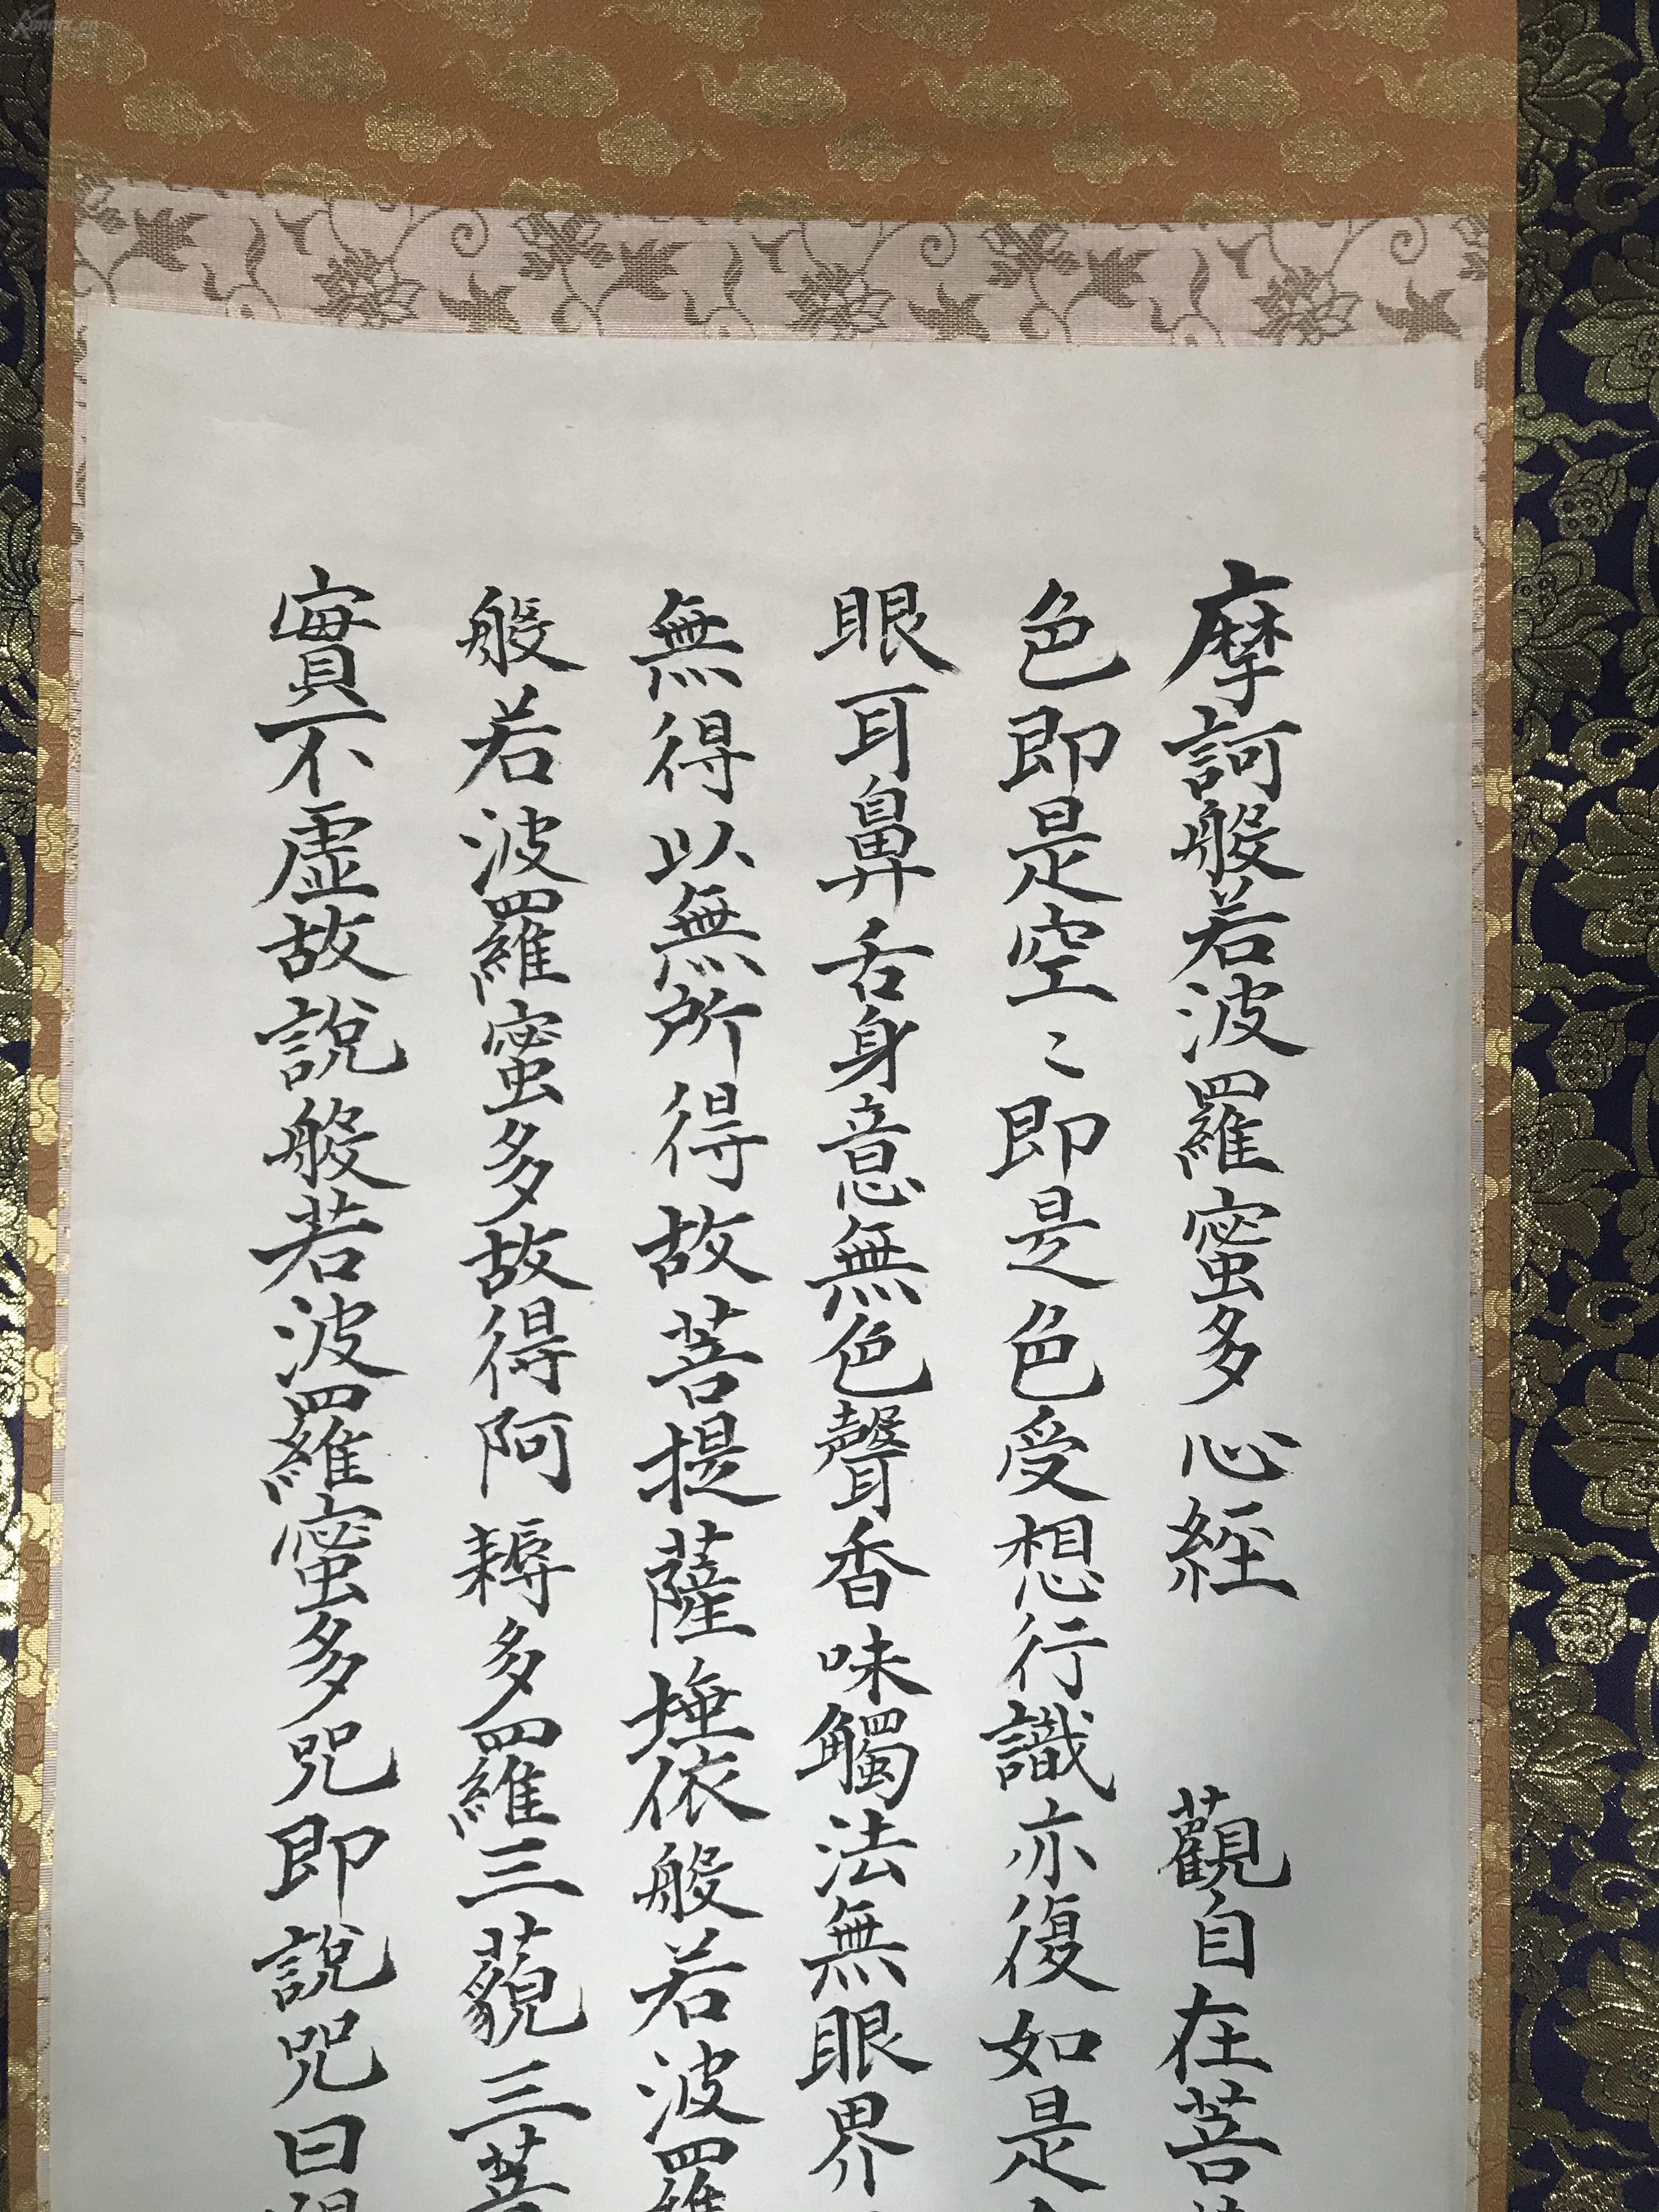 摩訶般若波羅蜜多心経 觀自在菩
色即是空〻即是色受想行識亦復如是
眼耳鼻舌身意無色聲香味觸法無眼界
無得以無所得故菩提薩埵依般若波羅
般若波羅蜜多故得阿耨多羅三藐三菩
實不虛故說般若波羅蜜多咒即說咒曰